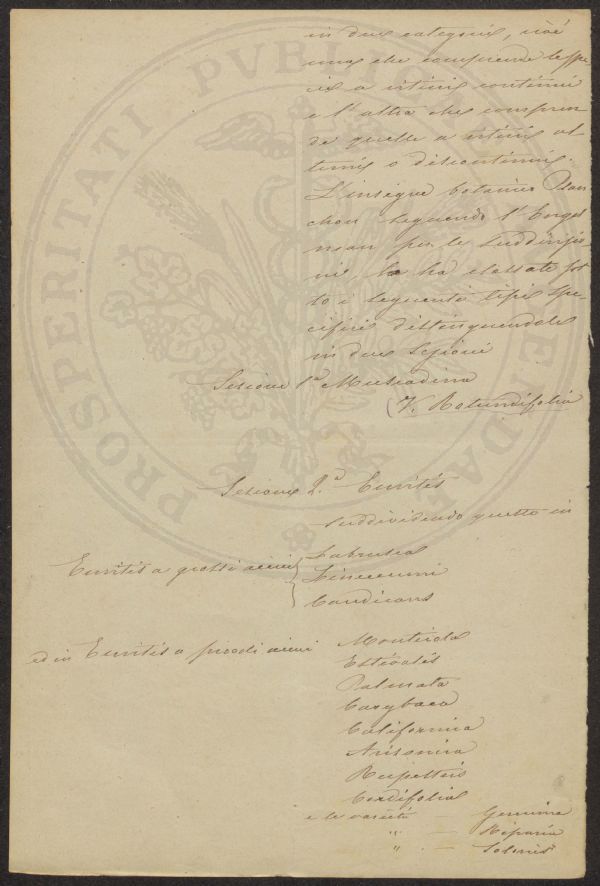 in due categorie, cioè
una che comprende le spe-
cie a viticci continui
e l'altra che compren-
de quelle a viticci al-
terni o discontinui.
L'insigne botanico Plan-
chon seguendo l'Engel
man per le suddivisio-
ni, le ha classate sot
to i seguenti tipi spe-
cifici distinguendole
in due Sezioni
Sezione 1.a Muscadinia
(V. Rotundifolia
Sezione 2.a Euvitis
suddividendo questo in
Euvitis a grossi acini
Labrusca
Lincecumi
Candicans
ed in Euvitis a piccoli acini
Monticola
Estivalis
Palmata
Carybaea
California
Arizonica
Rupestris
Cordifolia
e le varietà - Genuina
" - Riparia
" - Solonis
PROSPERITATI PVBLICAE